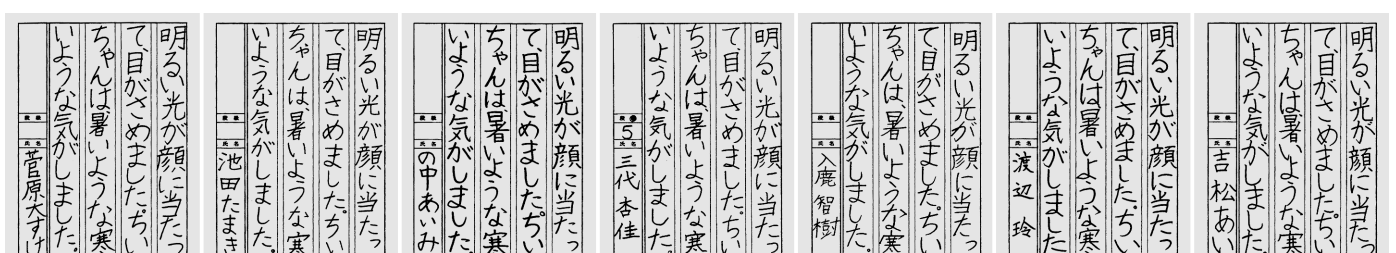 明るい光が顔に当たっ
て、目がさめました。ちい
ちゃんは、暑いような寒
いような気がしました。
段 級
氏 名
菅原大すけ
明るい光が顔に当たっ
て、目がさめました。ちい
ちゃんは、暑いような寒
いような気がしました。
段 級
氏 名
池田たまき
明るい光が顔に当たっ
て、目がさめました。ちい
ちゃんは、暑いような寒
いような気がしました
段 級
氏 名
の中あいみ
明るい光が顔に当たっ
て、目がさめました。ちい
ちゃんは、暑いような寒
いような気がしました。
段
5
氏 名
三代杏佳
明るい光が顔に当たっ
て、目がさめました。ちい
ちゃんは、暑いような寒
いような気がしました。
段 級
氏 名
入鹿智樹
明るい光が顔に当たっ
て、目がさめました。ちい
ちゃんは、暑いような寒
いような気がしました
段 級
氏 名
渡辺玲
明るい光が顔に当たっ
て、目がさめました。ちい
ちゃんは、暑いような寒
いような気がしました。
段 級
氏 名
吉松あい